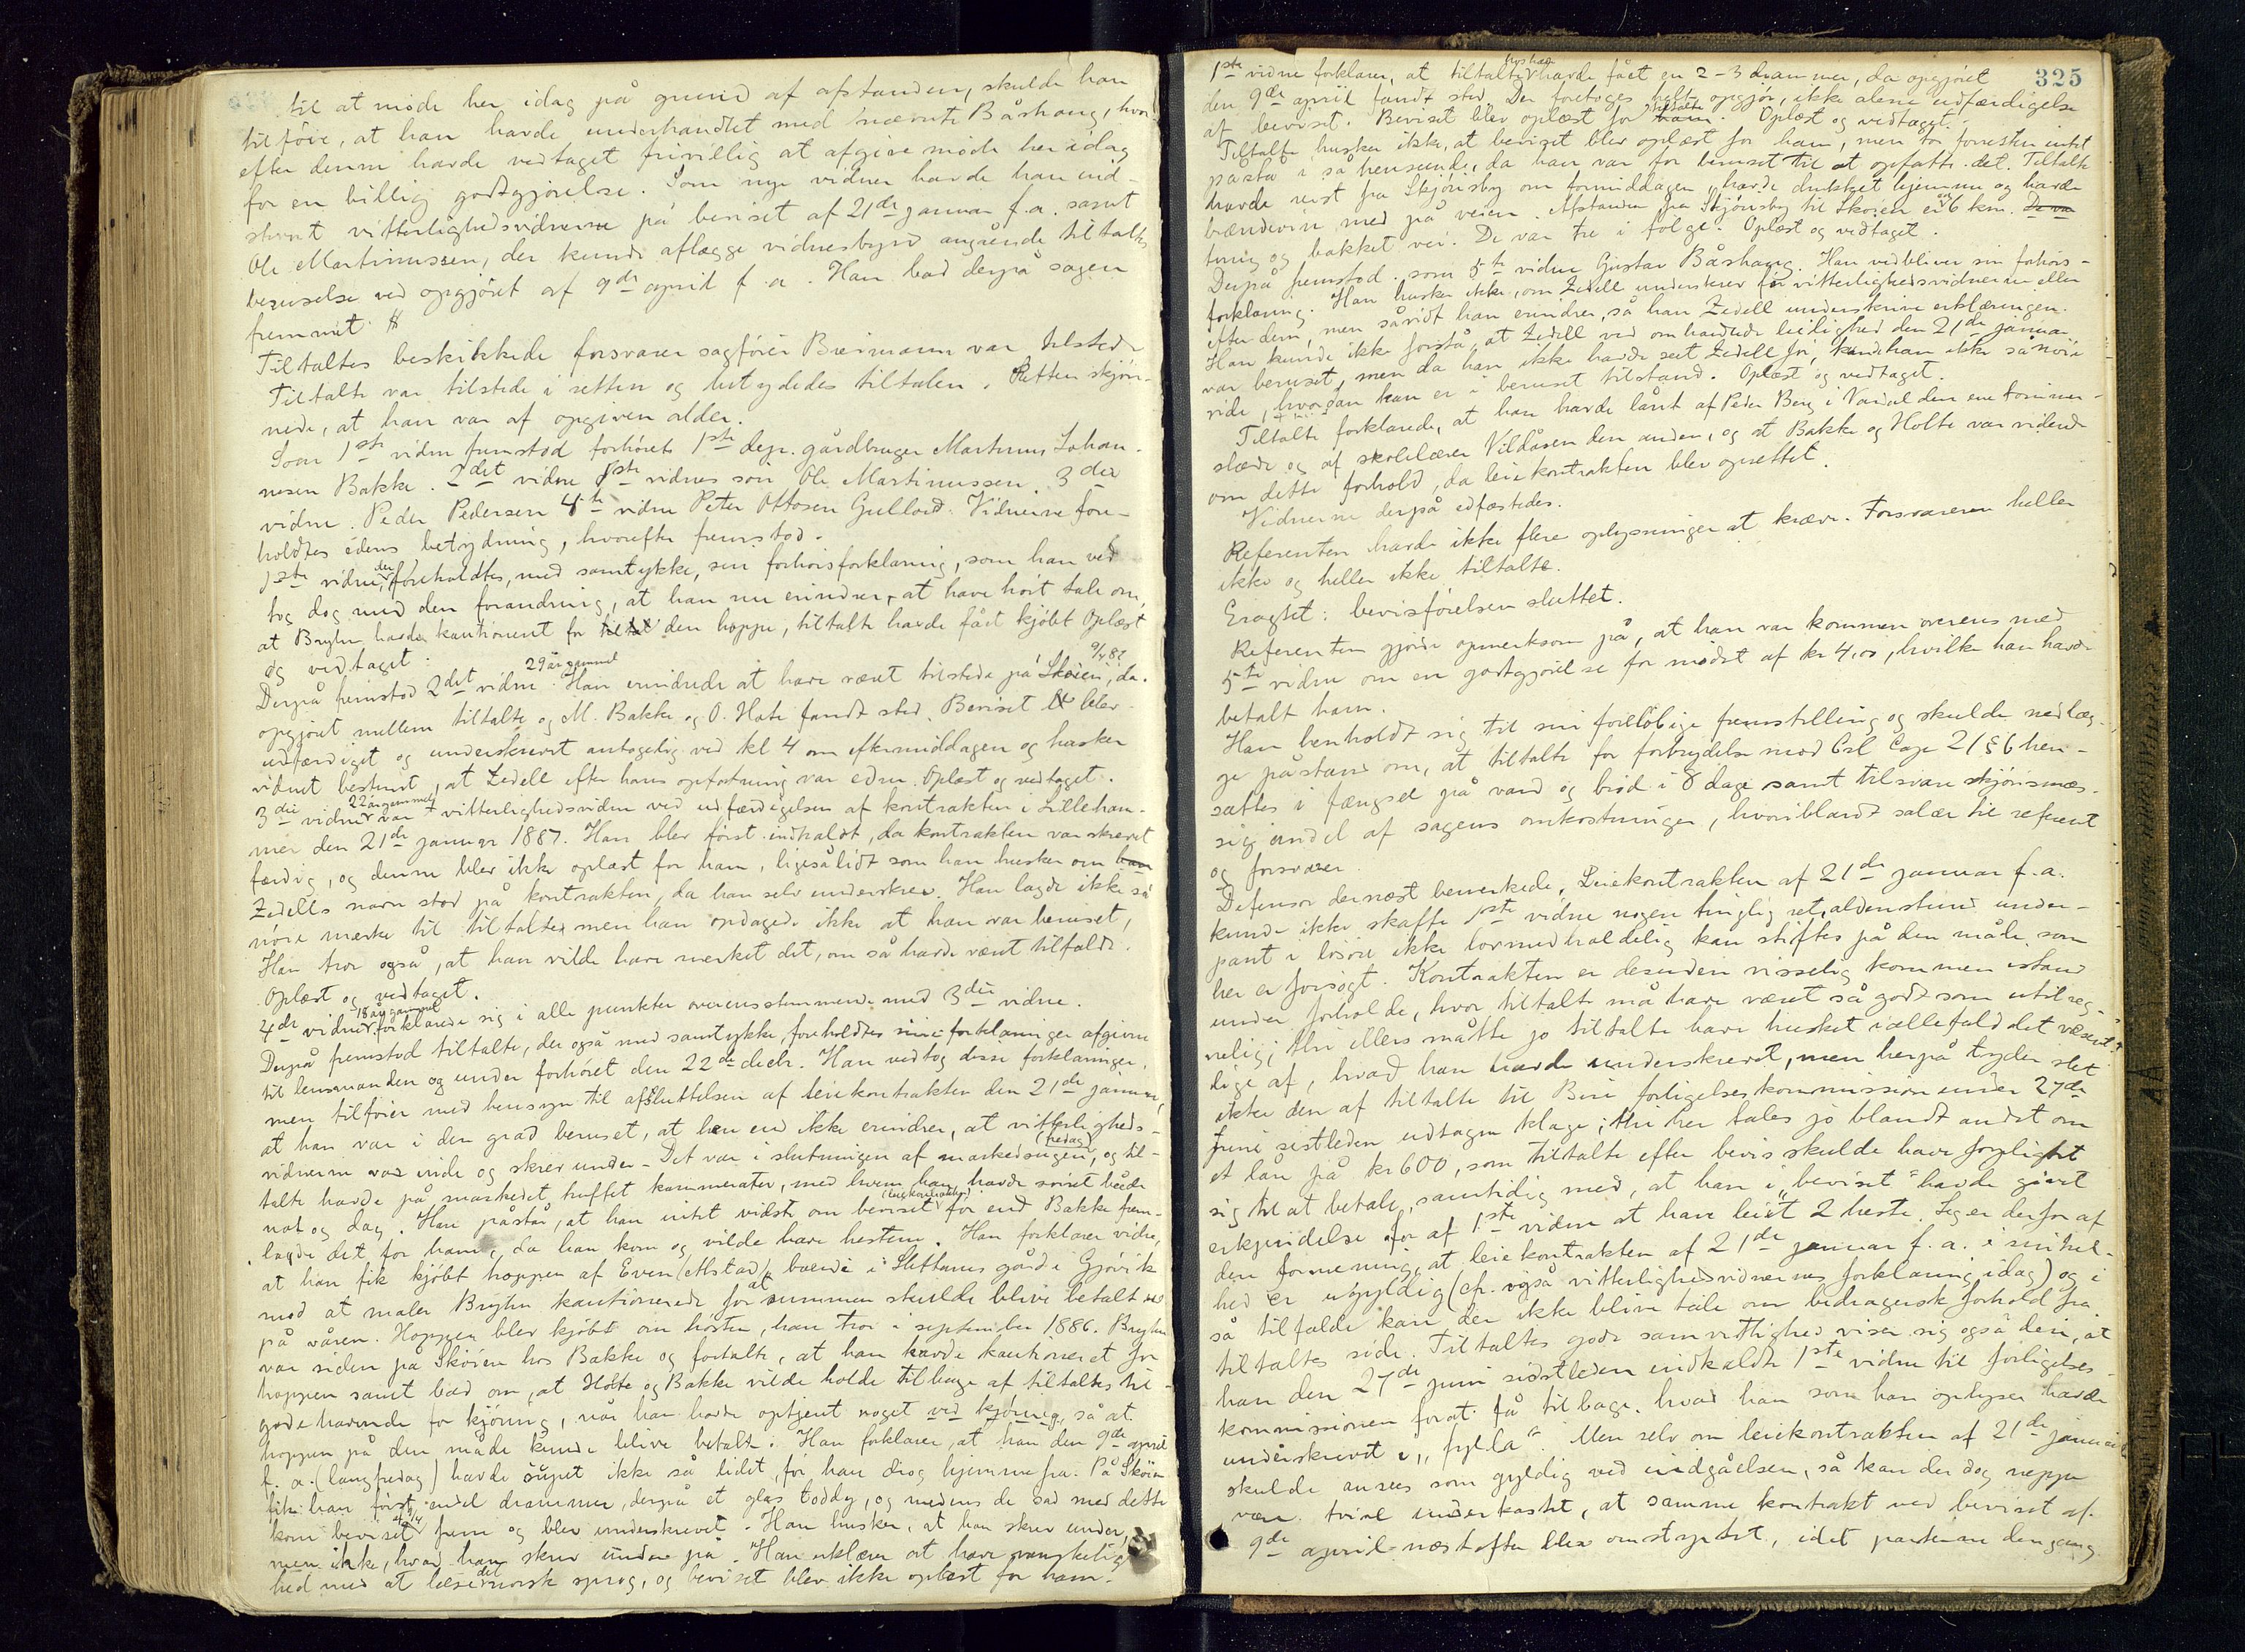 til at møde her idag på grund af afstanden, skulde han
tilføie, at han havde underhandlet med nævnte Båshaug, hvor-
efter denne havde vedtaget frivillig at afgive møde her idag
for en billig godtgjørelse. Som nye vidner havde han ind-
stevnt vitterlighedsvidnerne på beviset af 21de januar f.a. samt
Ole Martinussen, der kunde aflægge vidnesbyrd angående tiltaltes
beruselse ved opgjøret af 9de april f.a. Han bad derpå sagen
fremmet.
Tiltaltes beskikkede forsvarer sagfører Breimann var tilstede
Tiltalte var tilstede i retten og betydedes tiltalen. Retten skjøn-
nede, at han var af opgiven alder.
Som 1ste vidne fremstod forhørets 1ste dep. gårdbruger Martinus Johan-
nesen Bakke. 2det vidne 1ste vidnes søn Ole Martinussen. 3die
vidne. Peder Pedersen 4de vidne Peter Ottosen Gullord. Vidnerne fore-
holdtes edens betydning, hvorefter fremstod.
1ste vidne, der foreholdtes, med samtykke, sin forhørsforklaring, som han ved-
tog dog med den forandring, at han nu erindrer, at have hørt tale om,
at Bryhn havde kautioneret for den hoppe, tiltalte havde fået kjøbt Oplæst
og vedtaget.
Derpå fremstod 2det vidne 29 år gammel. Han erindrede at have været tilstede på Skøien, da 9/4 87
opgjøret mellem tiltalte og M. Bakke og O. Holte fandt sted. Beviset blev
udfærdiget og underskrevet antagelig ved kl 4 om eftermiddagen og husker
vidnet bestemt, at Zedell efter hans opfatning var edru. Oplæst og vedtaget.
3die vidne 22 år gammel var vitterlighedsvidne ved udfærdigelsen af kontrakten i Lilleham-
mer den 21de januar 1887. Han blev først indkaldt, da kontrakten var skrevet
færdig, og denne blev ikke oplæst for ham, ligesålidt som han husker om
Zedells navn stod på kontrakten, da han selv underskrev. Han lagde ikke så
nøie mærke til tiltalte men han opdagede ikke at han var beruset,
Han tror også, at han vilde have merket det, om så havde været tilfælde.
Oplæst og vedtaget.
4de vidne 18 år gammel forklarede sig i alle punkter overensstemmende med 3die vidne.
Derpå fremstod tiltalte, der også med samtykke foreholdtes sine forklaringer afgivne
til lensmanden og under forhøret den 22de decbr. Han vedtog disse forklaringer,
men tilføier med hensyn til afsluttelsen af leiekontrakten den 21de januar,
at han var i den grad beruset, at han end ikke erindrer, at vitterligheds-
vidnerne var inde og skrev under. Det var i slutningen af markedsugen (fredag), og til-
talte havde på markedet truffet kammerater, med hvem han havde sviret både
nat og dag. Han påstår, at han intet vidste om beviset (leiekontrakten) før end Bakke frem-
lagde det for ham, da han kom og vilde have hestene. Han forklarer videre,
at han fik kjøbt hoppen af Even (Alstad) boende i Slettums gård i Gjøvik
mod at maler Bryhn kautionerede for at summen skulde blive betalt
på våren. Hoppen blev kjøbt om høsten, han tror i september 1886. Bryhn
var siden på Skøien hos Bakke og fortalte, at han havde kautioneret for
hoppen samt bad om, at Holte og Bakke vilde holde tilbage af tiltaltes til-
godehavende for kjøring, når han havde optjent noget ved kjøring, så at
hoppen på den måde kunde blive betalt. Han forklarer, at han den 9de april
f. a. (langfredag) havde supet ikke så lidet, før han drog hjemmefra. På Skøien
fik han først endel drammer, derpå et glas toddy, og medens de sad med dette
kom beviset af 9/4 frem og blev underskrevet. Han husker, at han skrev under,
men ikke, hvad han skrev under på. Han erklærer at have vanskelig-
hed med at læse det norsk sprog, og beviset blev ikke oplæst for ham.
325
1ste vidne forklarer, at tiltalte hos ham havde fået en 2-3 drammer, da opgjøret
den 9de april fandt sted. Der foretoges helt opgjør, ikke alene udfærdigelse
af beviset. Beviset blev oplæst for tiltalte. Oplæst og vedtaget.
Tiltalte husker ikke, at beviset blev oplæst for ham, men tør forresten intet
påstå i så henseende, da han var for beruset til at opfatte det. Tiltalte
havde reist fra Skjønsby om formiddagen, havde drukket hjemme og havde
brændevin med på veien. Afstanden fra Skjønsby til Skøien er 6 km.
tung og bakket vei. De var tre i følge. Oplæst og vedtaget.
Derpå fremstod som 5te vidne Gustav Båshaug. Han vedbliver sin forhørs-
forklaring. Han husker ikke, om Zedell underskrev før vitterlighedsvidnerne eller
efter dem, men såvidt han erindrer, så han Zedell underskrive erklæringen.
Han kunde ikke forstå, at Zedell ved omhandlede leilighed den 21de januar
var beruset, men da han ikke havde seet Zedell før, kunde han ikke så nøie
vide, hvordan han er i beruset tilstand. Oplæst og vedtaget.
Tiltalte forklarede, at han havde lånt af Peder Berg i Vardal den ene tømmer-
slæde og af skolelærer Vildåsen den anden, og at Bakke og Holte var vidende
om dette forhold, da leiekontrakten blev oprettet.
Vidnerne derpå edfæstedes.
Referenten havde ikke flere oplysninger at kræve. Forsvareren heller
ikke og heller ikke tiltalte.
Eragtet: bevisførelsen sluttet.
Referenten gjorde opmerksom på, at han var kommen overens med
5te vidne om en godtgjørelse for mødet af kr 4,00, hvilke han havde
betalt ham.
Han henholdt sig til sin foreløbige fremstilling og skulde nedlæg-
ge påstand om, at tiltalte for forbrydelse mod Crl Cap 21 § 6 hen-
sættes i fængsel på vand og brød i 8 dage samt tilsvare skjønsmæs-
sig andel af sagens omkostninger, hvoriblandt salær til referent
og forsvarer.
Defensor dernæst bemerkede, Leiekontrakten af 21de januar f.a.
kunde ikke skaffe 1ste vidne nogen tinglig ret, aldenstund under-
pant i løsøre ikke lovmedholdelig kan stiftes på den måde, som
her er forsøgt. Kontrakten er desuden visselig kommen istand
under forholde, hvor tiltalte må have været så godt som utilreg-
nelig; thi ellers måtte jo tiltalte have husket iallefald det væsent-
lige af, hvad han havde underskrevet, men herpå tyder slet
ikke den af tiltalte til Biri forligelseskommission under 27de
juni sistleden udtagne klage; thi her tales jo blandt andet om
et lån på kr 600, som tiltalte efter bevis skulde have forpligtet
sig til at betale, samtidig med, at han i „beviset" havde givet
erkjendelse for af 1ste vidne at have leiet 2 heste. Jeg er derfor af
den formening, at leiekontrakten af 21de januar f.a. i sin hel-
hed er ugyldig (cfr. også vitterlighedsvidnernes forklaring idag) og i
så tilfælde kan der ikke blive tale om bedragersk forhold fra
tiltaltes side. Tiltaltes gode samvittighed viser sig også deri, at
han den 27de juni sidstleden indkaldte 1ste vidne til forligelses-
kommissionen forat få tilbage, hvad han som han oplyser havde
underskrevet i „fylla". Men selv om leiekontrakten af 21de januar
skulde ansees som gyldig ved indgåelsen, så kan der dog neppe
være tvivl underkastet, at samme kontrakt ved beviset af
9de april næstefter blev omstøtet, idet parterne dengang